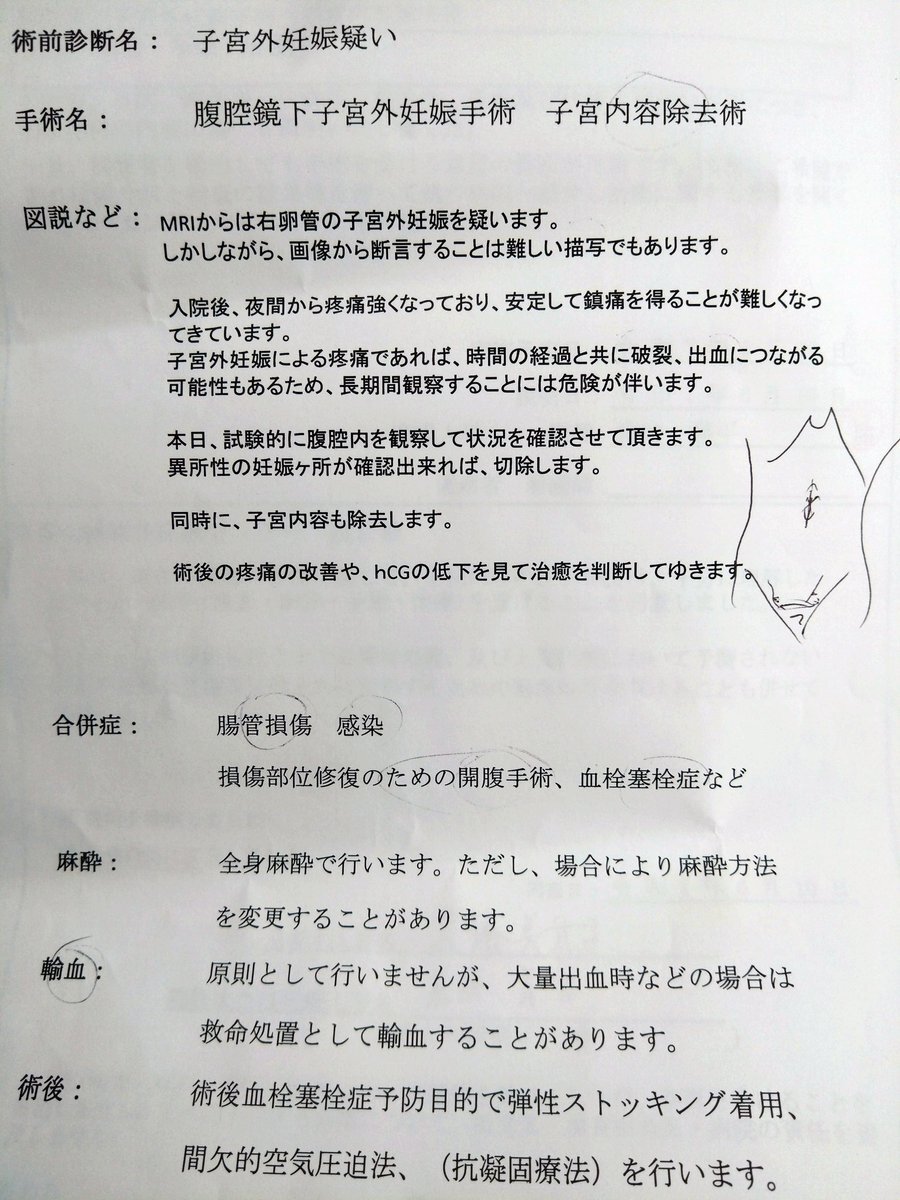 術前診断名： 子宮外妊娠疑い
手術名： 腹腔鏡下子宮外妊娠手術　子宮内容除去術
図説など： MRIからは右卵管の子宮外妊娠を疑います。
しかしながら、画像から断言することは難しい描写でもあります。
入院後、夜間から疼痛強くなっており、安定して鎮痛を得ることが難しくなっ
てきています。
子宮外妊娠による疼痛であれば、時間の経過と共に破裂、出血につながる
可能性もあるため、長期間観察することには危険が伴います。
本日、試験的に腹腔内を観察して状況を確認させて頂きます。
異所性の妊娠ヶ所が確認出来れば、切除します。
同時に、子宮内容も除去します。
術後の疼痛の改善や、hCGの低下を見て治癒を判断してゆきます。
合併症： 腸管損傷　感染
損傷部位修復のための開腹手術、血栓塞栓症など
麻酔： 全身麻酔で行います。ただし、場合により麻酔方法
を変更することがあります。
輸血： 原則として行いませんが、大量出血時などの場合は
救命処置として輸血することがあります。
術後： 術後血栓塞栓症予防目的で弾性ストッキング着用、
間欠的空気圧迫法、（抗凝固療法）を行います。